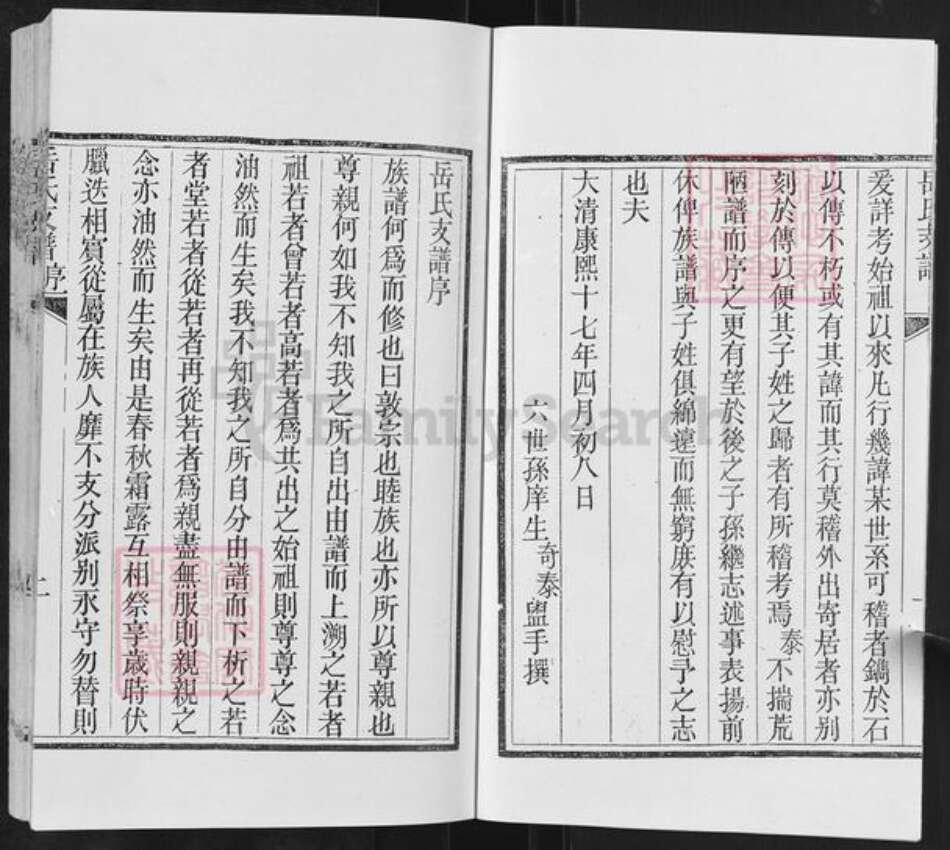 岳氏支譜
爰詳考始祖以來凡行幾諱某世系可稽者鐫於石
以傳不朽或有其諱而其行莫稽外出寄居者亦别
刻於傳以便其子姓之歸者有所稽考焉泰不揣荒
陋譜而序之更有望於後之子孫繼志述事表揚前
休俾族譜與子姓俱綿遠而無窮庶有以慰予之志
也夫
大清康熙十七年四月初八日
六世孫庠生奇泰盥手撰
岳氏支譜序
族譜何爲而修也曰敦宗也睦族也亦所以尊親也
尊親何如我不知我之所自出由譜而上溯之若者
祖若者曾若者高若者爲共出之始祖則尊尊之念
油然而生矣我不知我之所自分由譜而下析之若
者堂若者從若者再從若者爲親盡無服則親親之
念亦油然而生矣由是春秋霜露互相祭享歲時伏
臘迭相賓從屬在族人靡不支分派别永守勿替則
岳氏支譜 序 二
FamilySearch